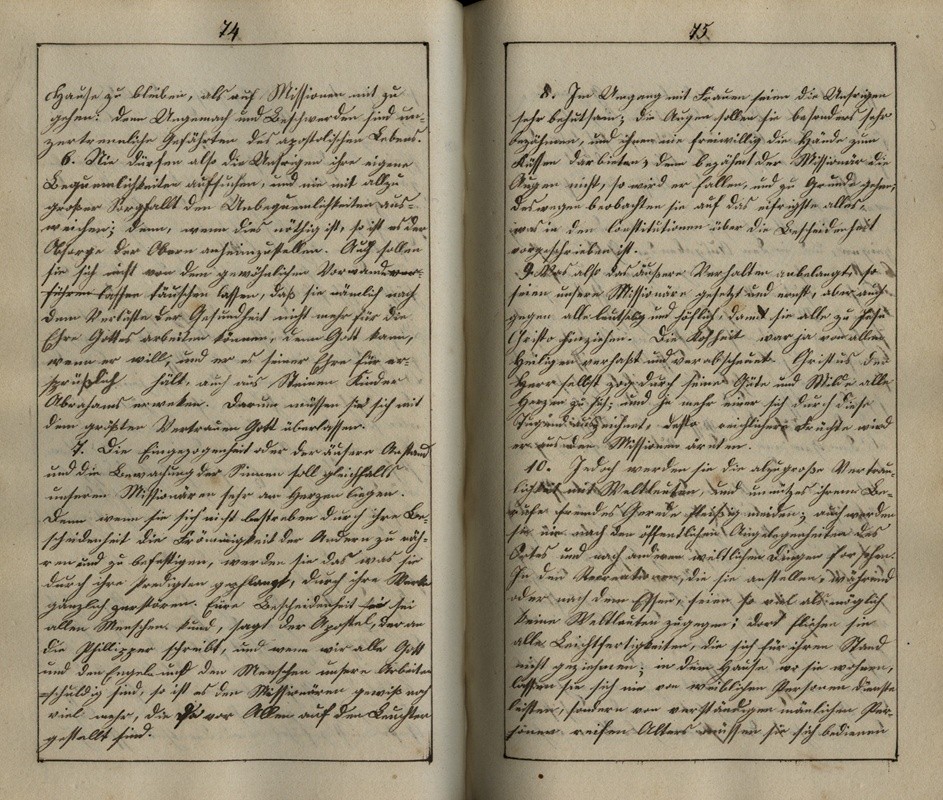 74
Hause zu bleiben, als auf Missionen mit zu
gehen. Denn Ungemach und Beschwerden sind un-
zertrennliche Gefährten des apostolischen Lebens.
6. Nie dürfen also die Unsrigen ihre eigene
Bequemlichkeiten aufsuchen, und nie mit allzu
großer Sorgfallt den Unbequemlichkeiten aus-
weichen; denn, wenn dies nöthig ist, so ist es der
Obsorge der Obern anheimzustellen. Auch sollen
sie sich nicht von dem gewöhnlichen Vorwande ver-
führen lassen täuschen lassen, daß sie nämlich nach
dem Verluste der Gesundheit nicht mehr für die
Ehre Gottes arbeiten können, denn Gott kann,
wenn er will, und er es seiner Ehre für er-
sprießlich hält, auch aus Steinen Kinder
Abrahams erweken. Darum müssen sie sich mit
dem größten Vertrauen Gott überlassen.
7. Die Eingezogenheit oder der äußere Anstand
und die Bewachung der Sinnen soll gleichfalls
unseren Missionären sehr am Herzen liegen.
Denn wenn sie sich nicht bestreben durch ihre Be-
scheidenheit die Frömmigkeit der Andern zu näh-
ren und zu befestigen, werden sie das was sie
durch ihre Predigten gepflanzt, durch ihre Werke
gänzlich zerstören. Eure Bescheidenheit sei
allen Menschen kund, sagt der Apostel, der an
die Philipper schreibt, und wenn wir alle Gott
und den Engeln und den Menschen unsere Arbeiten
schuldig sind, so ist es den Missionären gewiß noch
viel mehr, die da vor Allen auf den Leuchter
gestellt sind.
75
8. Im Umgang mit Frauen seien die Unsrigen
sehr behutsam; die Augen sollen sie besonders sehr
bezähmen, und ihnen nie freiwillig die Hände zum
Küssen darbieten; denn bezähmt der Missionär die
Augen nicht, so wird er fallen, und zu Grunde gehen;
deswegen beobachten sie auf das eifrigste alles,
was in den Constitutionen über die Bescheidenheit
vorgeschrieben ist.
9. Was also das äußere Verhalten anbelangt, so
seien unsere Missionäre gesetzt und ernst, aber auch
gegen alle leutselig und höflich, damit sie alle zu
Christo hinziehen. Die Rohheit war ja von allen
Heiligen verhaßt und verabscheut. Christus der
Herr selbst zog durch seine Güte und Milde alle
Herzen zu sich; und je mehr einer sich durch diese
Tugend auszeichnet, desto reichlichere Früchte wird
er aus den Missionen ärnten.
10. Jedoch werden sie die alzugroße Vertrau-
lichkeit mit Weltleuten, und unnützes ihrem Be-
rufe fremdes Gerede fleißig meiden; auch werden
sie nie nach den öffentlichen Angelegenheiten des
Ortes und nach anderen weltlichen Dingen forschen.
In den Recreationen, die sie anstellen, während
oder nach dem Essen, seien so viel als möglich
keine Weltleuten zugegen; dort fliehen sie
alle Leichtfertigkeiten, die sich für ihren Stand
nicht geziehmen; in dem Hause wo sie wohnen,
lassen sie sich nie von weiblichen Personen dienste
leisten, sondern von verständigen mänlichen Per-
sonen reifen Alters müssen sie sich bedienen